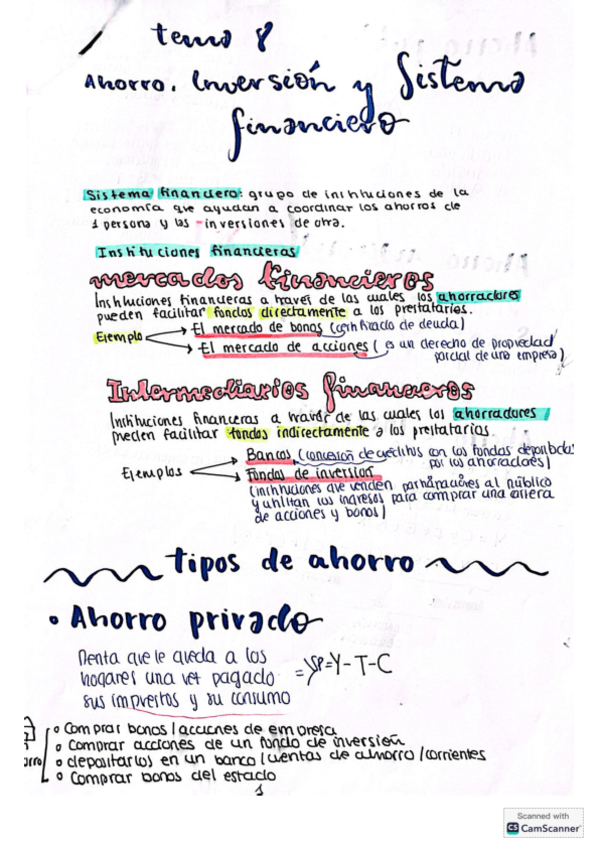 tema 8
Ahorro. Inversión y Sistema
financiero
Sistema financiero: grupo de instituciones de la
economía que ayudan a coordinar los ahorros de
1 persona y las inversiones de otra.
Instituciones financieras
mercados financieros
Instituciones financieras a través de las cuales los ahorradores
pueden facilitar fondos directamente a los prestatarios.
Ejemplo
El mercado de bonos (certificado de deuda)
El mercado de acciones (es un derecho de propiedad
parcial de una empresa)
Intermediarios financieros
Instituciones financieras a través de las cuales los ahorradores
pueden facilitar fondos indirectamente a los prestatarios
Ejemplos
Bancos (concesion de créditos con los fondos depositados
por los ahorradores)
Fondos de inversion
(instituciones que venden participaciones al público
y utilizan los ingresos para comprar una cartera
de acciones y bonos)
tipos de ahorro
• Ahorro privado
Renta que le queda a los
hogares una vez pagado
sus impuestos y su consumo
= Sp=Y-T-C
Comprar bonos/acciones de empresa
Comprar acciones de un fondo de inversión
depositarlos en un banco/cuentas de ahorro/corrientes
Comprar bonos del estado
1
Scanned with
CS CamScanner